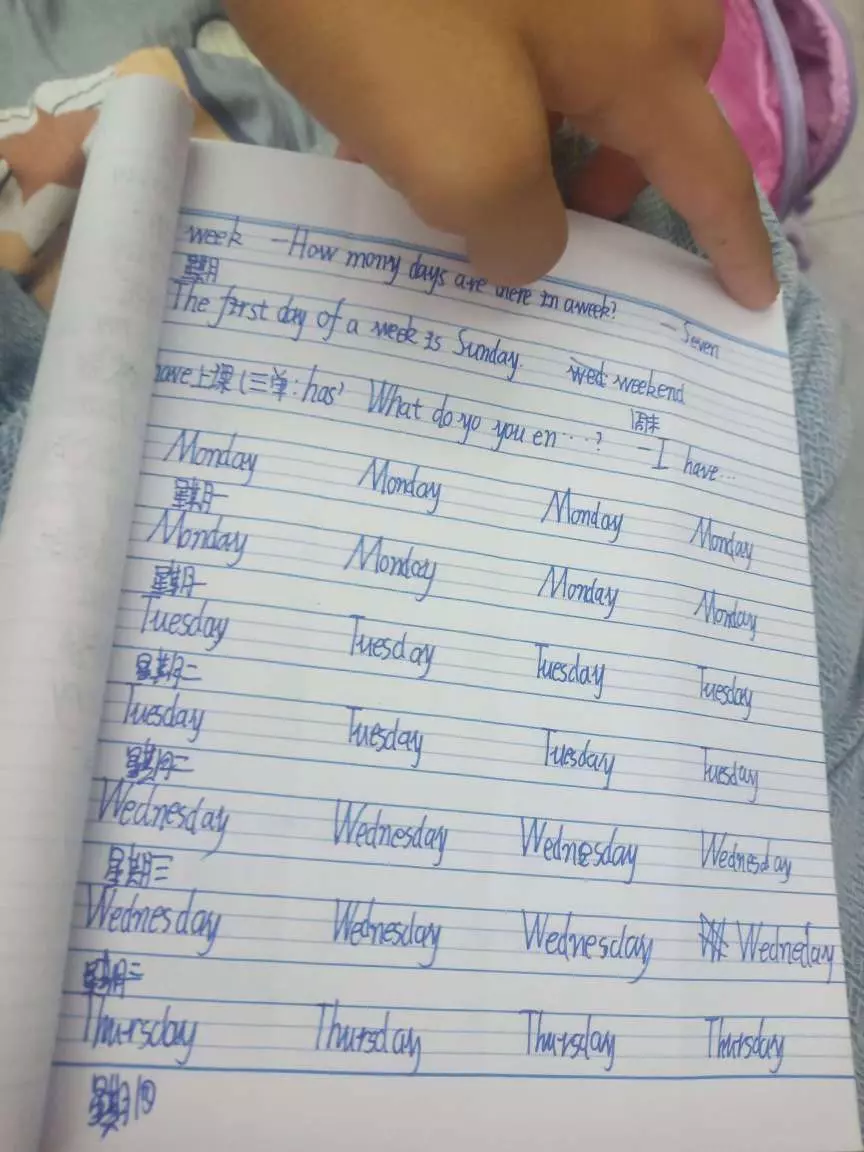 week —How many days are there in a week? —Seven
星期
The first day of a week is Sunday. wed weekend
周末
have上课(三单:has) What do yo you en…? —I have…
Monday Monday Monday Monday
星期一
Monday Monday Monday Monday
星期一
Tuesday Tuesday Tuesday Tuesday
星期二
Tuesday Tuesday Tuesday Tuesday
星期二
Wednesday Wednesday Wednesday Wednesday
星期三
Wednesday Wednesday Wednesday Wedneday
星期三
Thursday Thursday Thursday Thursday
星期四